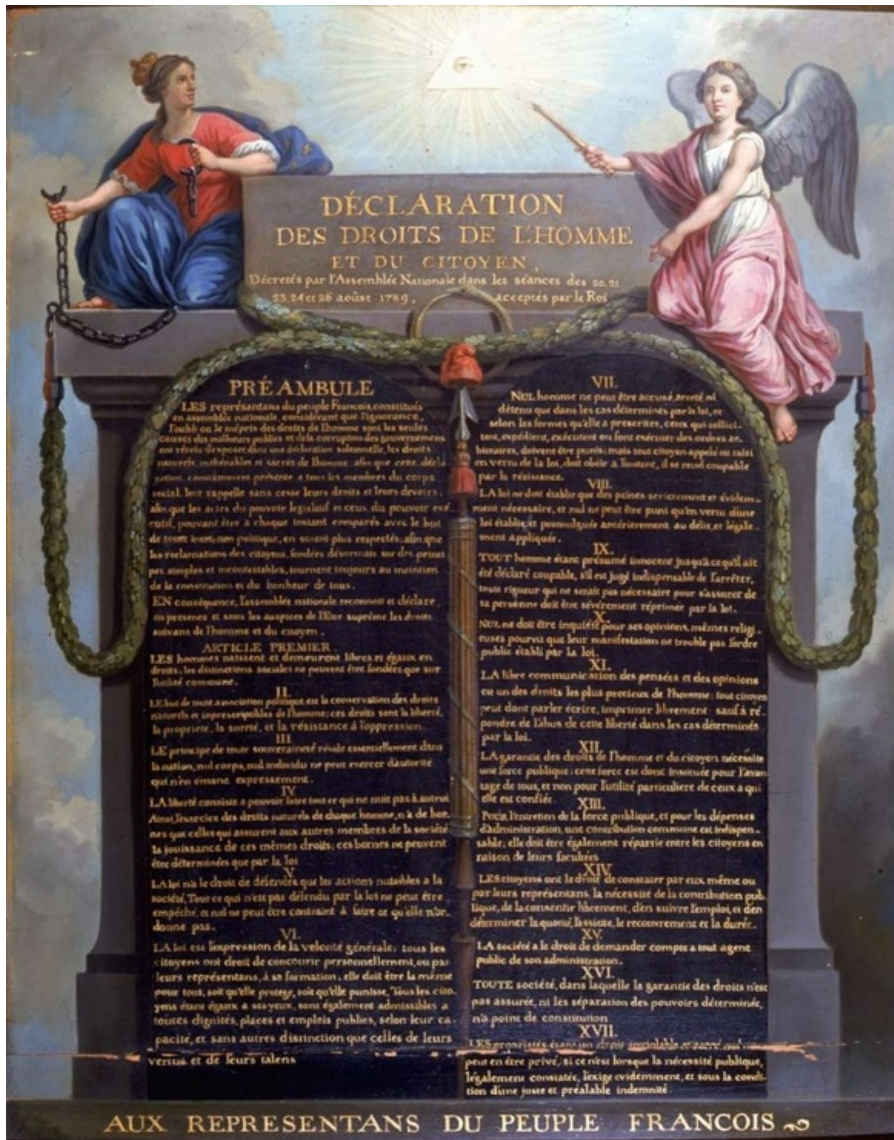 DÉCLARATION
DES DROITS DE L'HOMME
ET DU CITOYEN,
Décretés par l'Assemblée Nationale dans les séances des 20. 21
23. 24 et 26 aoûst 1789, acceptés par le Roi
PRÉAMBULE
LES représantans du peuple Francois, constitués
en assemblée nationale, considérant que l'ignorance,
l'oubli ou le mépris des droits de l'homme sont les seules
causes des malheurs publics et de la corruption des gouvernemens
ont résolu d'exposer dans une déclaration solennelle, les droits
naturels, inaliénables et sacrés de l'homme: afin que cette décla
ration, constamment présente a tous les membres du corps
social, leur rappelle sans cesse leurs droits et leurs devoirs,
afin que les actes du pouvoir législatif et ceux du pouvoir exé-
cutif, pouvant être à chaque instant comparés avec le but
de toute institution politique, en soient plus respectés; afin que
les réclamations des citoyens, fondées désormais sur des princi
pes simples et incontestables, tournent toujours au maintien
de la constitution et du bonheur de tous.
EN conséquence, l'assemblée nationale reconnoit et déclare
en presence et sous les auspices de l'Etre suprême les droits
suivans de l'homme et du citoyen.
ARTICLE PREMIER.
LES hommes naissent et demeurent libres et égaux en
droits; les distinctions sociales ne peuvent être fondées que sur
l'utilité commune.
II.
LE but de toute association politique est la conservation des droits
naturels et inprescriptibles de l'homme; ces droits sont la liberté,
la proprieté, la sureté, et la résistance à l'oppression.
III.
LE principe de toute souveraineté réside essentiellement dans
la nation, nul corps, nul individu ne peut exercer d'autorité
qui n'en émane expressement.
IV.
LA liberté consiste a pouvoir faire tout ce qui ne nuit pas à autrui
Ainsi, l'exercice des droits naturels de chaque homme, n'a de bor-
nes que celles qui assurent aux autres membres de la société
la jouissance de ces mêmes droits; ces bornes ne peuvent
être déterminées que par la loi
V.
LA loi n'a le droit de défendre que les actions nuisibles a la
société. Tout ce qui n'est pas défendu par la loi ne peut être
empêché, et nul ne peut être contraint à faire ce qu'elle n'or-
donne pas.
VI.
LA loi est l'expression de la volonté générale; tous les
citoyens ont droit de concourir personnellement, ou par
leurs représentans, à sa formation; elle doit être la même
pour tous, soit qu'elle protege, soit qu'elle punisse. Tous les cito
yens étant égaux a ses yeux, sont également admissibles a
toutes dignités, places et emplois publics, selon leur ca-
pacité, et sans autres distinction que celles de leurs
vertus et de leurs talens
VII.
NUL homme ne peut être accusé, arreté, ni
détenu que dans les cas déterminés par la loi, et
selon les formes qu'elle a prescrites, ceux qui sollici-
tent, expédient, exécutent ou font exécuter des ordres ar-
bitraires, doivent être punis; mais tout citoyen appelé ou saisi
en vertu de la loi, doit obéir a l'instant, il se rend coupable
par la résistance.
VIII.
LA loi ne doit établir que des peines strictement et évidem-
ment nécessaire, et nul ne peut être puni qu'en vertu d'une
loi établie et promulguée antérierement au délit, et légale-
ment appliquée.
IX.
TOUT homme étant présumé innocent jusqu'à ce qu'il ait
été déclaré coupable, s'il est jugé indispensable de l'arrêter,
toute rigueur qui ne serait pas nécessaire pour s'assurer de
sa personne doit être sévèrement réprimée par la loi.
X.
NUL ne doit être inquiété pour ses opinions, mêmes religi-
euses pourvu que leur manifestation ne trouble pas l'ordre
public établi par la loi.
XI.
LA libre communication des pensées et des opinions
est un des droits les plus precieux de l'homme; tout citoyen
peut donc parler écrire, imprimer librement: sauf à ré-
pondre de l'abus de cette liberté dans les cas déterminés
par la loi.
XII.
LA garantie des droits de l'homme et du citoyen nécessite
une force publique; cette force est donc instituée pour l'avan
tage de tous, et non pour l'utilité particuliere de ceux a qui
elle est confiée.
XIII.
Pour l'entretien de la force publique, et pour les dépenses
d'administration, une contribution commune est indispen-
sable; elle doit être également répartie entre les citoyens en
raison de leurs facultées
XIV.
LES citoyens ont le droit de constater par eux même ou
par leurs représentans, la nécessité de la contribution pub-
lique, de la consentir librement, d'en suivre l'emploi, et d'en
déterminer la quotité, l'assiette, le recouvrement et la durée.
XV.
LA société a le droit de demander compte a tout agent
public de son administration.
XVI.
TOUTE société, dans laquelle la garantie des droits n'est
pas assurée, ni les séparation des pouvoirs déterminée,
n'a point de constitution
XVII.
LES proprietés étant un droit inviolable et sacré, nul ne
peut en être privé, si ce n'est lorsque la nécessité publique,
légalement constatée, l'exige evidemment, et sous la condi-
tion d'une juste et préalable indemnité.
AUX REPRESENTANS DU PEUPLE FRANCOIS